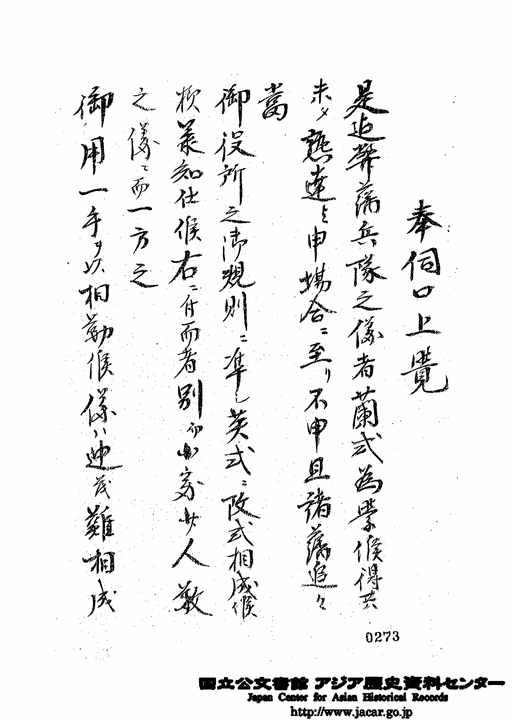 奉伺口上覚
是迄弊藩兵隊之儀者蘭式為学候得共
未タ熟達と申場合ニ至り不申且諸藩追々
当
御役所之御規則ニ準し英式ニ改式相成候
承知仕候右ニ付而者別而小家少人数
之儀ニ而一方之
御用一手ヲ以相勤候儀ハ迚茂難相成
0273
国立公文書館 アジア歴史資料センター
Japan Center for Asian Historical Records
http://www.jacar.go.jp